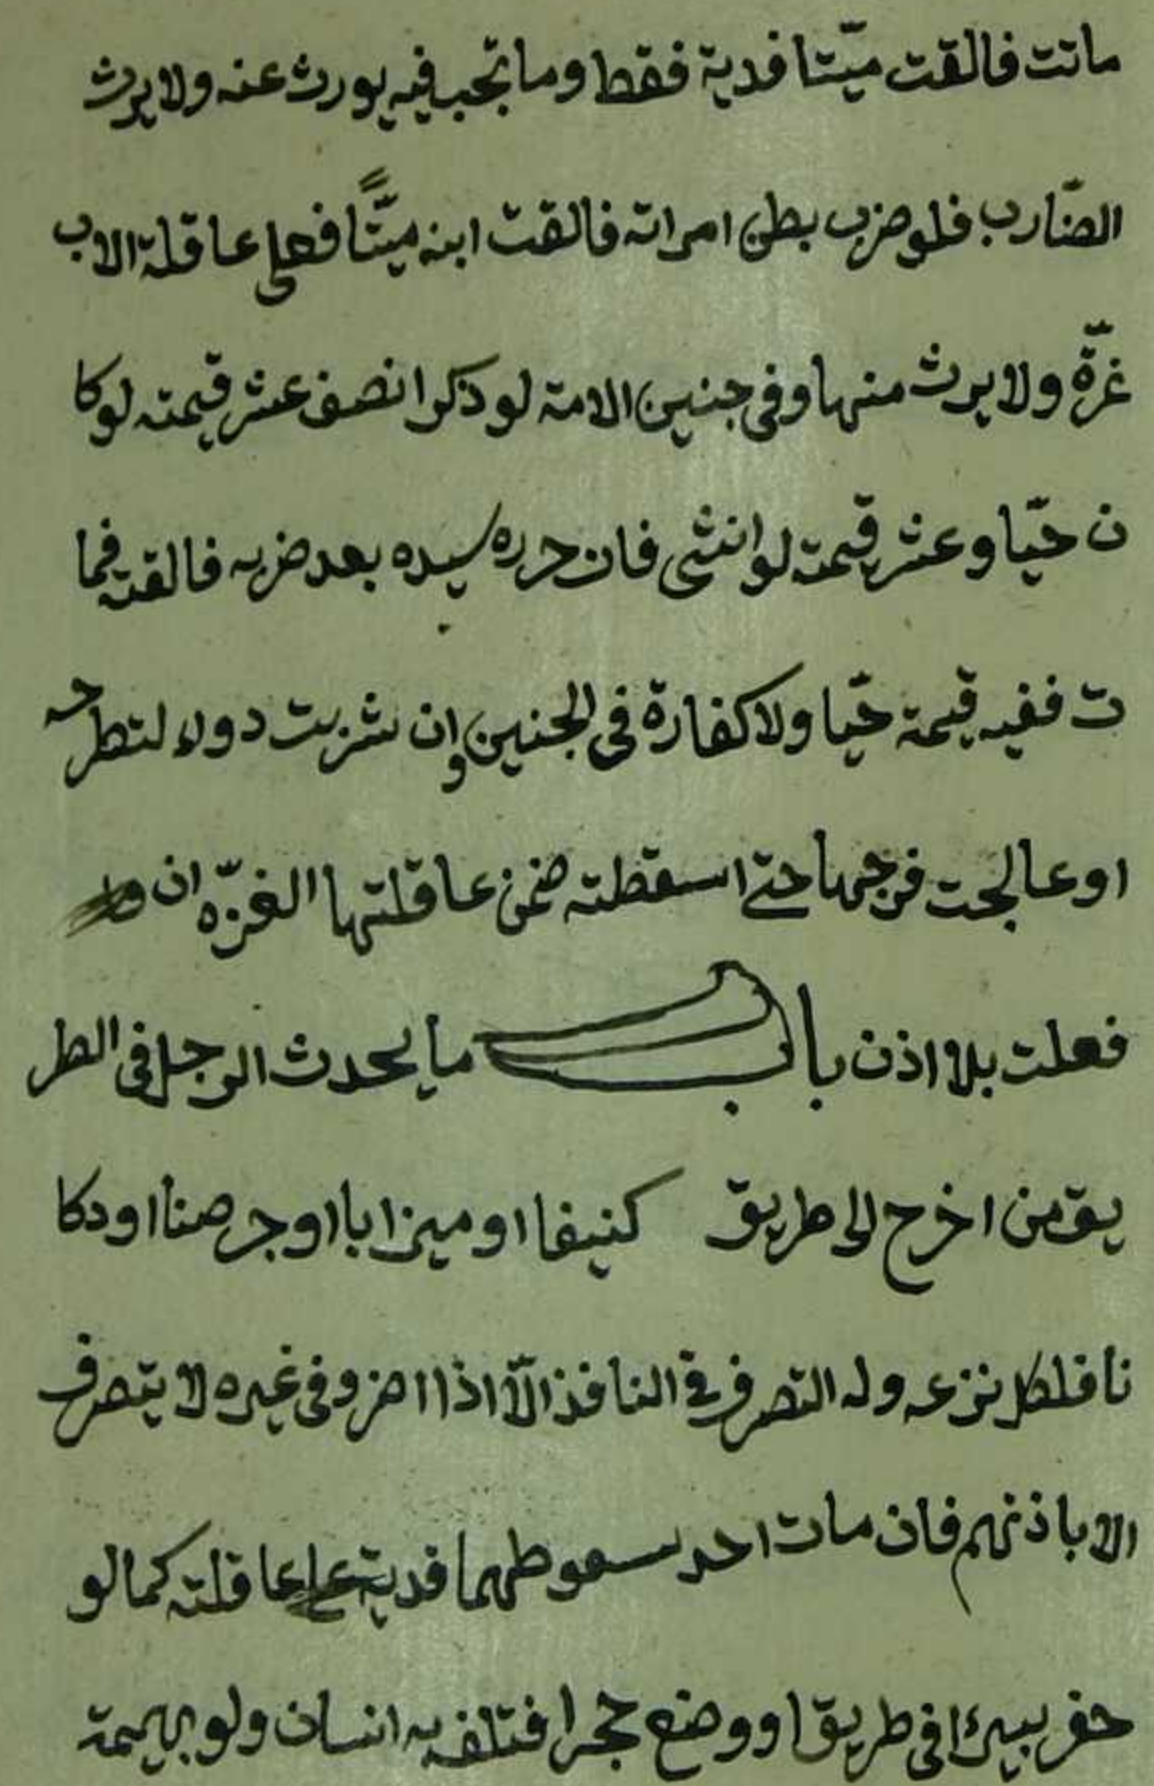 ماتت فالقت ميّتا فدية فقط وما تجب فيه يورث عنه ولا يرث
الضّارب فلو ضرب بطن امراته فالقت ابنه ميّتًا فعلى عاقلة الاب
غرّة ولا يرث منها وفى جنين الامة لو ذكرا نصف عشر قيمته لو كا
ن حيّا وعشر قيمته لو انثى فان حرره سيده بعد ضربه فالقته فما
ت ففيه قيمة حيّا ولا كفارة فى الجنين وان شربت دواء لتطرحه
او عالجت فرجها حتى اسقطته ضمن عاقلتها الغرّه ان
فعلت بلا اذن باب ما يحدث الرجل فى الطر
يق من اخرج الى طريق كنيفا او ميزابا او جرصنا او دكا
نا فلكل نزعه وله التصرف فى النافذ الّا اذا اضر وفى غيره لا يتصرف
الا باذنهم فان مات احد بسقوطهما فدية على عاقلته كما لو
حفر بيرًا فى طريق او وضع حجرا فتلف به انسان ولو بهيمة